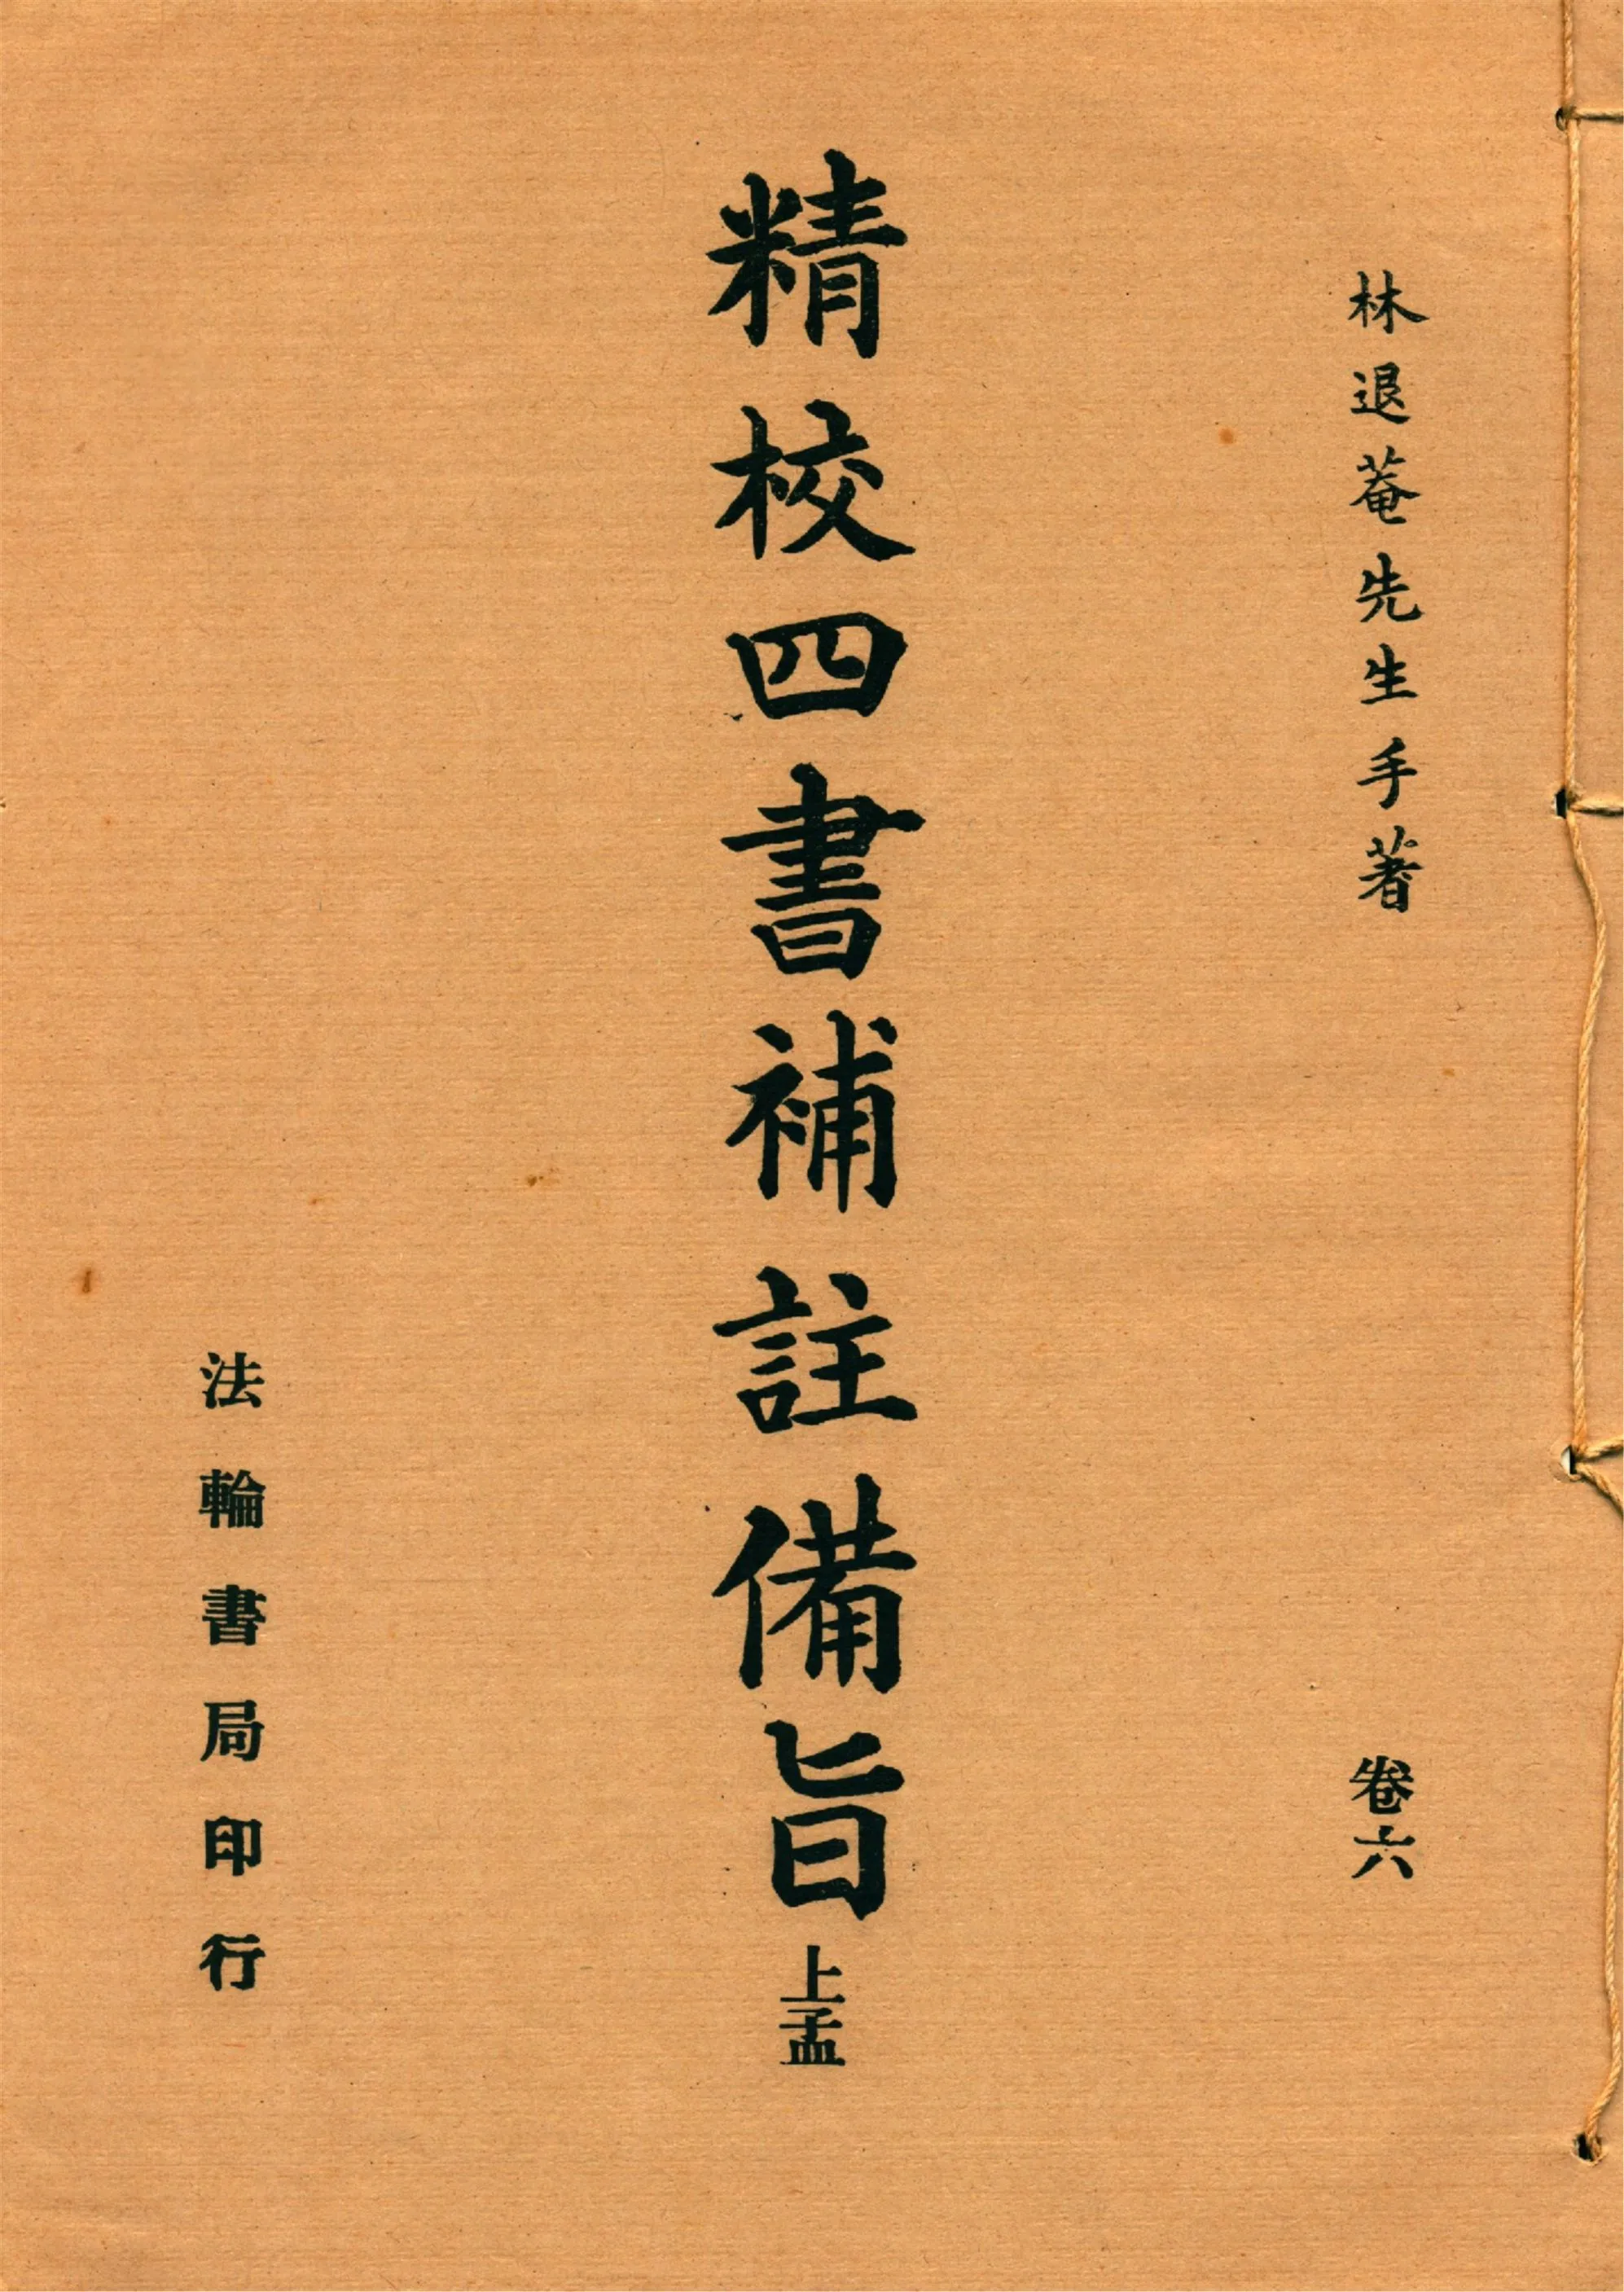 林退菴先生手著
卷六
精校四書補註備旨
上孟
法輪書局印行